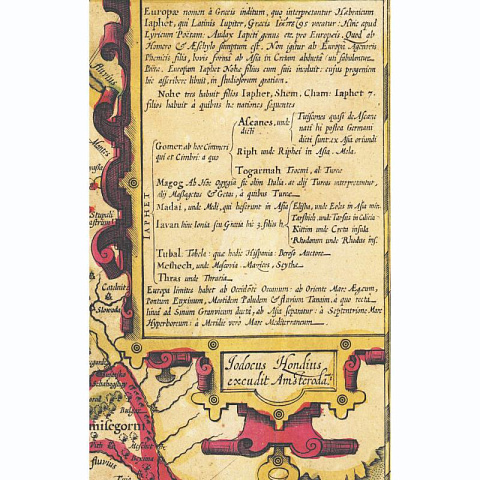 Europæ nomen à Græcis inditum, quo interpretantur Hebraicum
Iaphet, qui Latinis Iupiter, Græcis vocatur: Hinc apud
Lyricum Poëtam: Audax Iapeti genus etc. pro Europeis. Quod ab
Homero & Æschylo sumptum est. Non igitur ab Europa Agenoris
Phenicis filia, bovis forma ab Asia in Cretam abducta
Iaphet Nohe filius cum suis
libuit, in studiosorum gratiam.
Nohe tres habuit filios Iaphet, Shem, Cham: Iaphet 7.
filios habuit à quibus hæ nationes sequentes
Ascanes, unde dicti
Tuiscones quasi de Ascane
nati hi postea Germani
dicti sunt ex Asia oriundi
Gomer, ab hoc Cimmeri
qui et Cimbri: a quo
Riph unde Riphei in Asia. Mela.
Togarmah Trocmi, al. Turcæ
Magog Ab Hoc in Italia. at alij Turcas interpretantur,
alij Massagetas & Getas, à quibus Turcæ
Madai, unde Medi, qui hæserunt in Asia
Iavan hinc Ionia seu Græcia hic 3. filios h.
Elisha, unde Eoles in Asia min.
Tarshich, unde Tarsus in Cilicia
Kittim unde Creta insula
Rhodanum unde Rhodus ins.
Tubal: Tobele: quæ hodie Hispania: Beroso Auctore
Meshech, unde Moscovia. Mazices, Scythæ
Thiras unde Thracia.
IAPHET
Europa limites habet ab Occidēte Oceanum: ab Oriente Mare Ægæum,
Pontum Euxinum, Meotidem Paludem & fluvium Tanaim, a quo recta
linea ad Sinum Granvicum ducta, ab Asia separatur: à Septentrione Mare
Hyperboreum: à Meridie vero Mare Mediterraneum
Iodocus Hondius
excudit Amsteroda.
fluvius
Slowoda
misegorni
Bulgar
fluvius